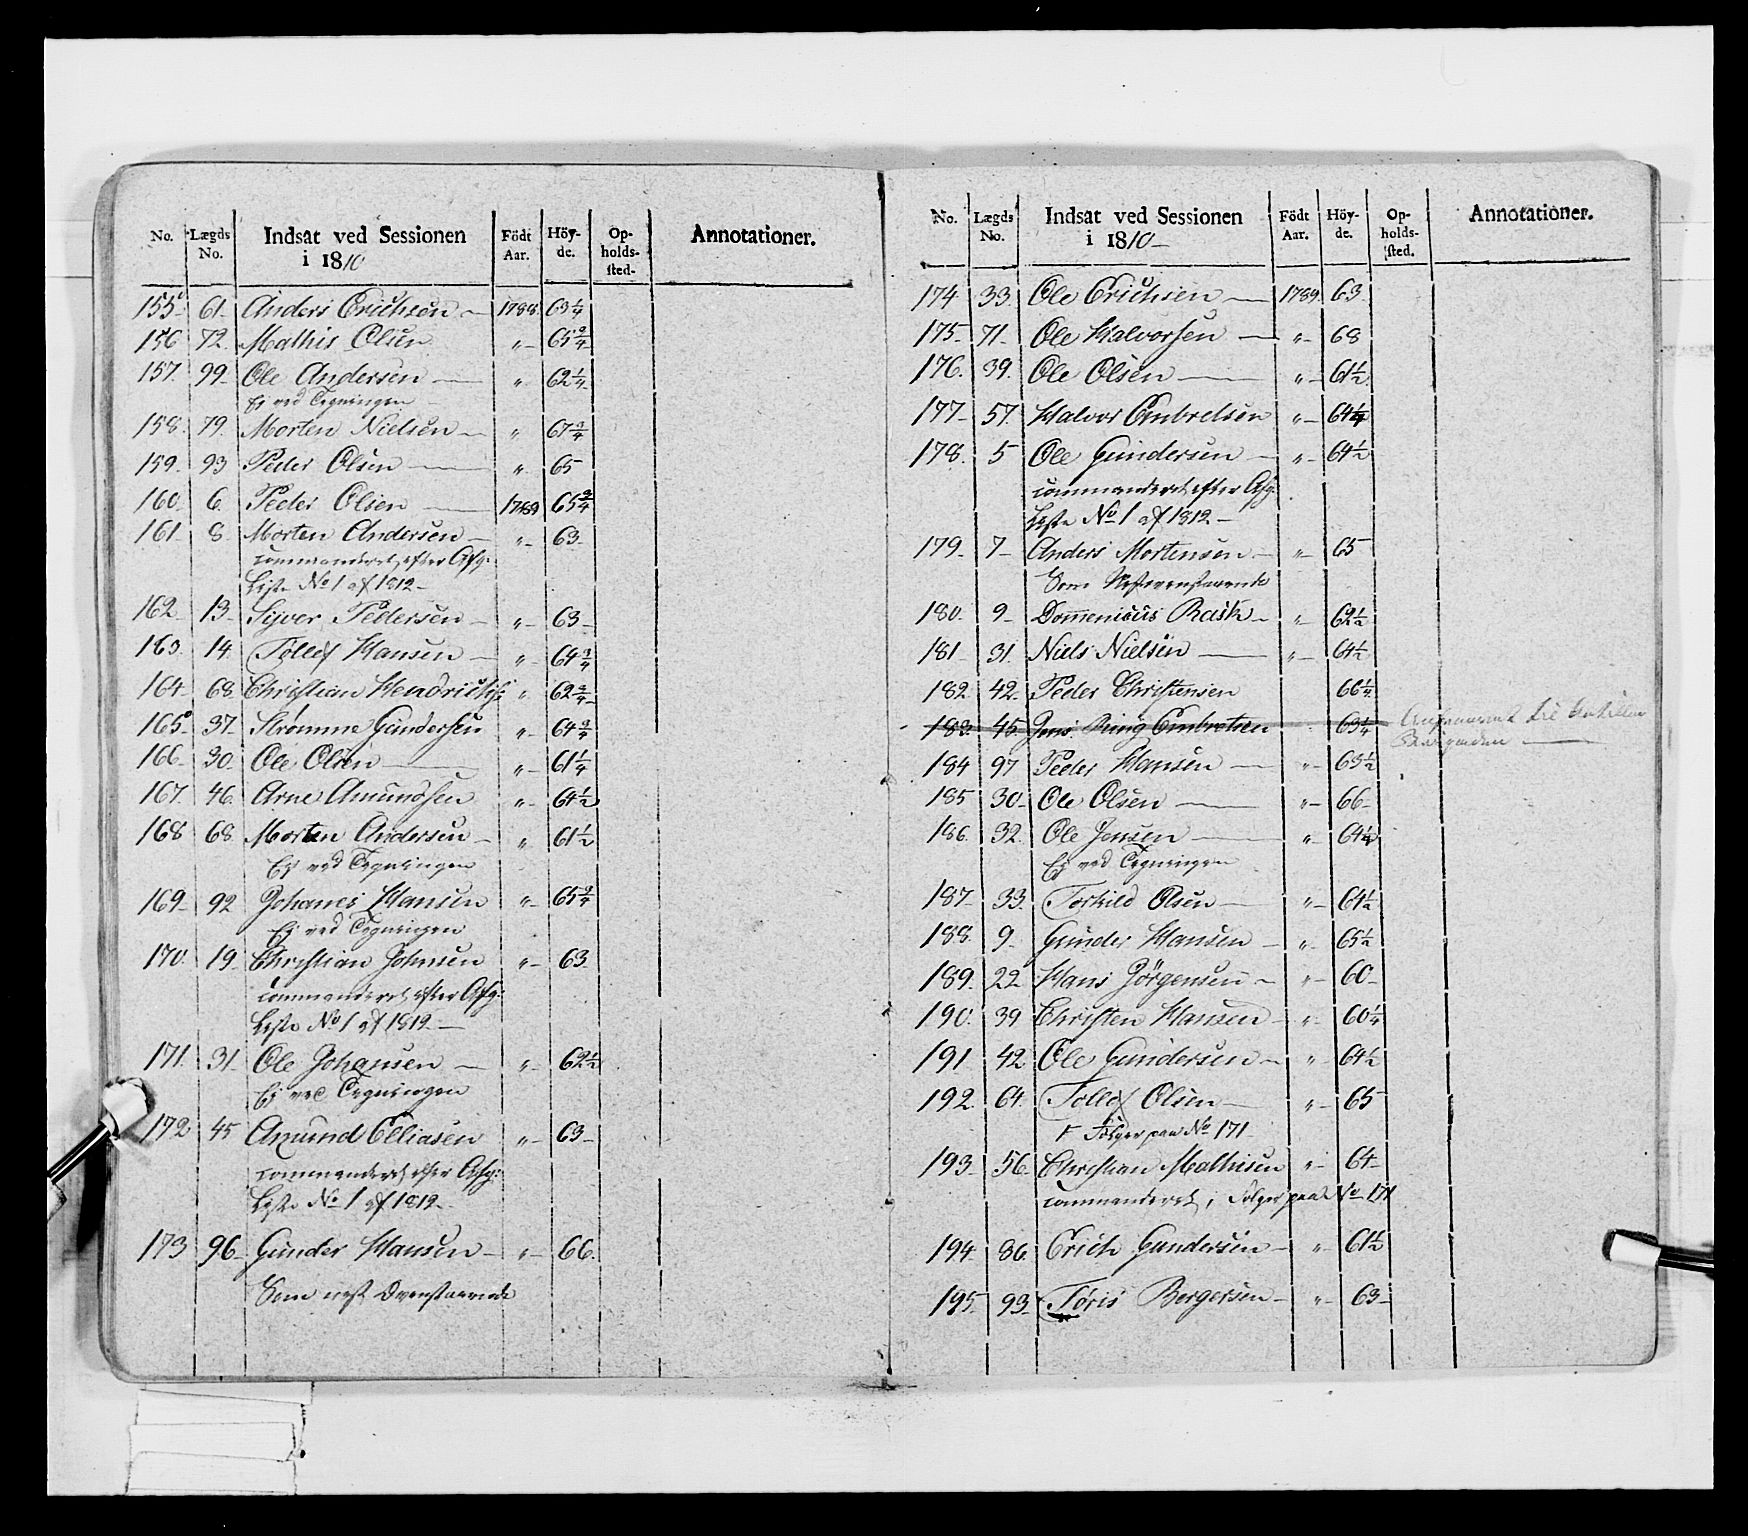 No. Lægds No. Indsat ved Sessionen i 1810 Födt Aar. Höyde. Opholdssted. Annotationer.
155 61 Anders Erichsen 1788 63 1/4
156 72 Mathis Olsen " 65 3/4
157 99 Ole Andersen " 62 1/4
Ej ved Tegningen
158 79 Morten Nielsen " 67 3/4
159 93 Peder Olsen " 65
160 6 Peder Olsen 1789 65 3/4
161 8 Morten Andersen " 63
commanderet efter Afg:
Liste No 1 af 1812
162 13 Syver Pedersen " 63
163 14 Tollef Hansen " 64 3/4
164 68 Christian Hendrichs: " 62 3/4
165 37 Strømme Gundersen " 64 3/4
166 30 Ole Olsen " 61 1/4
167 46 Arne Amundsen " 64 1/2
168 68 Morten Andersen " 61 1/2
Ej ved Tegningen
169 92 Johanes Hansen " 65 3/4
Ej ved Tegningen
170 19 Christian Johnsen " 63
commanderet efter Afg:
Liste No 1 af 1812
171 31 Ole Johansen " 62 1/2
Ej ved Tegningen
172 45 Amund Elliasen " 63
commanderet efter Afg:
Liste No 1 af 1812
173 96 Gunder Hansen " 66
Som nest Ovenstaaende
No. Lægds No. Indsat ved Sessionen i 1810 Födt Aar. Höyde. Opholdssted. Annotationer.
174 33 Ole Erichsen 1789 63
175 71 Ole Halvorsen " 68
176 39 Ole Olsen " 61 1/2
177 57 Halvor Embretsen " 64 1/4
178 5 Ole Gundersen " 64 1/2
commanderet efter Afg:
Liste No 1 af 1812
179 7 Anders Mortensen " 65
Som
180 9 Domenicus Rask " 62 1/2
181 31 Niels Nielsen " 64 1/2
182 42 Peder Christensen 66 1/4
183 45 Jens Ring Embretsen 63 1/4 til
184 97 Peder Hansen " 63 1/2
185 30 Ole Olsen " 66
186 32 Ole Jensen " 64 1/4
Ej ved Tegningen
187 33 Torkild Olsen " 64 1/2
188 9 Gunder Hansen " 65 1/2
189 22 Hans Jörgensen " 60
190 39 Christen Hansen " 60 1/4
191 42 Ole Gundersen " 64 1/2
192 64 Tollef Olsen " 65
Følger paa No 171
193 56 Christian Mathisen " 64
commanderet, Følger paa No 171
194 86 Erich Gundersen " 61 1/2
195 93 Toris Bergersen " 63